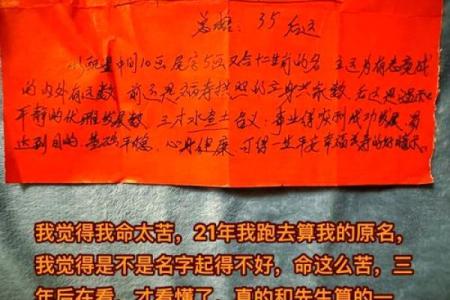 总格：35 后运
配画中间10画 尾字5画 又合十二生肖的名 主运为有志竟成
的内外有运数 前运是 的立身兴家数，后运是温和
平静的优雅发展数 三才水金土 含义：事业得顺利成功发展，易
达到目的，基础平稳，心身健康，可得一生平安幸福长寿的好暗示。
我觉得我命太苦，21年我跑去算我的原名，
我觉得是不是名字起得不好，命这么苦，三
年后在看，才看懂了，真的和先生算的一